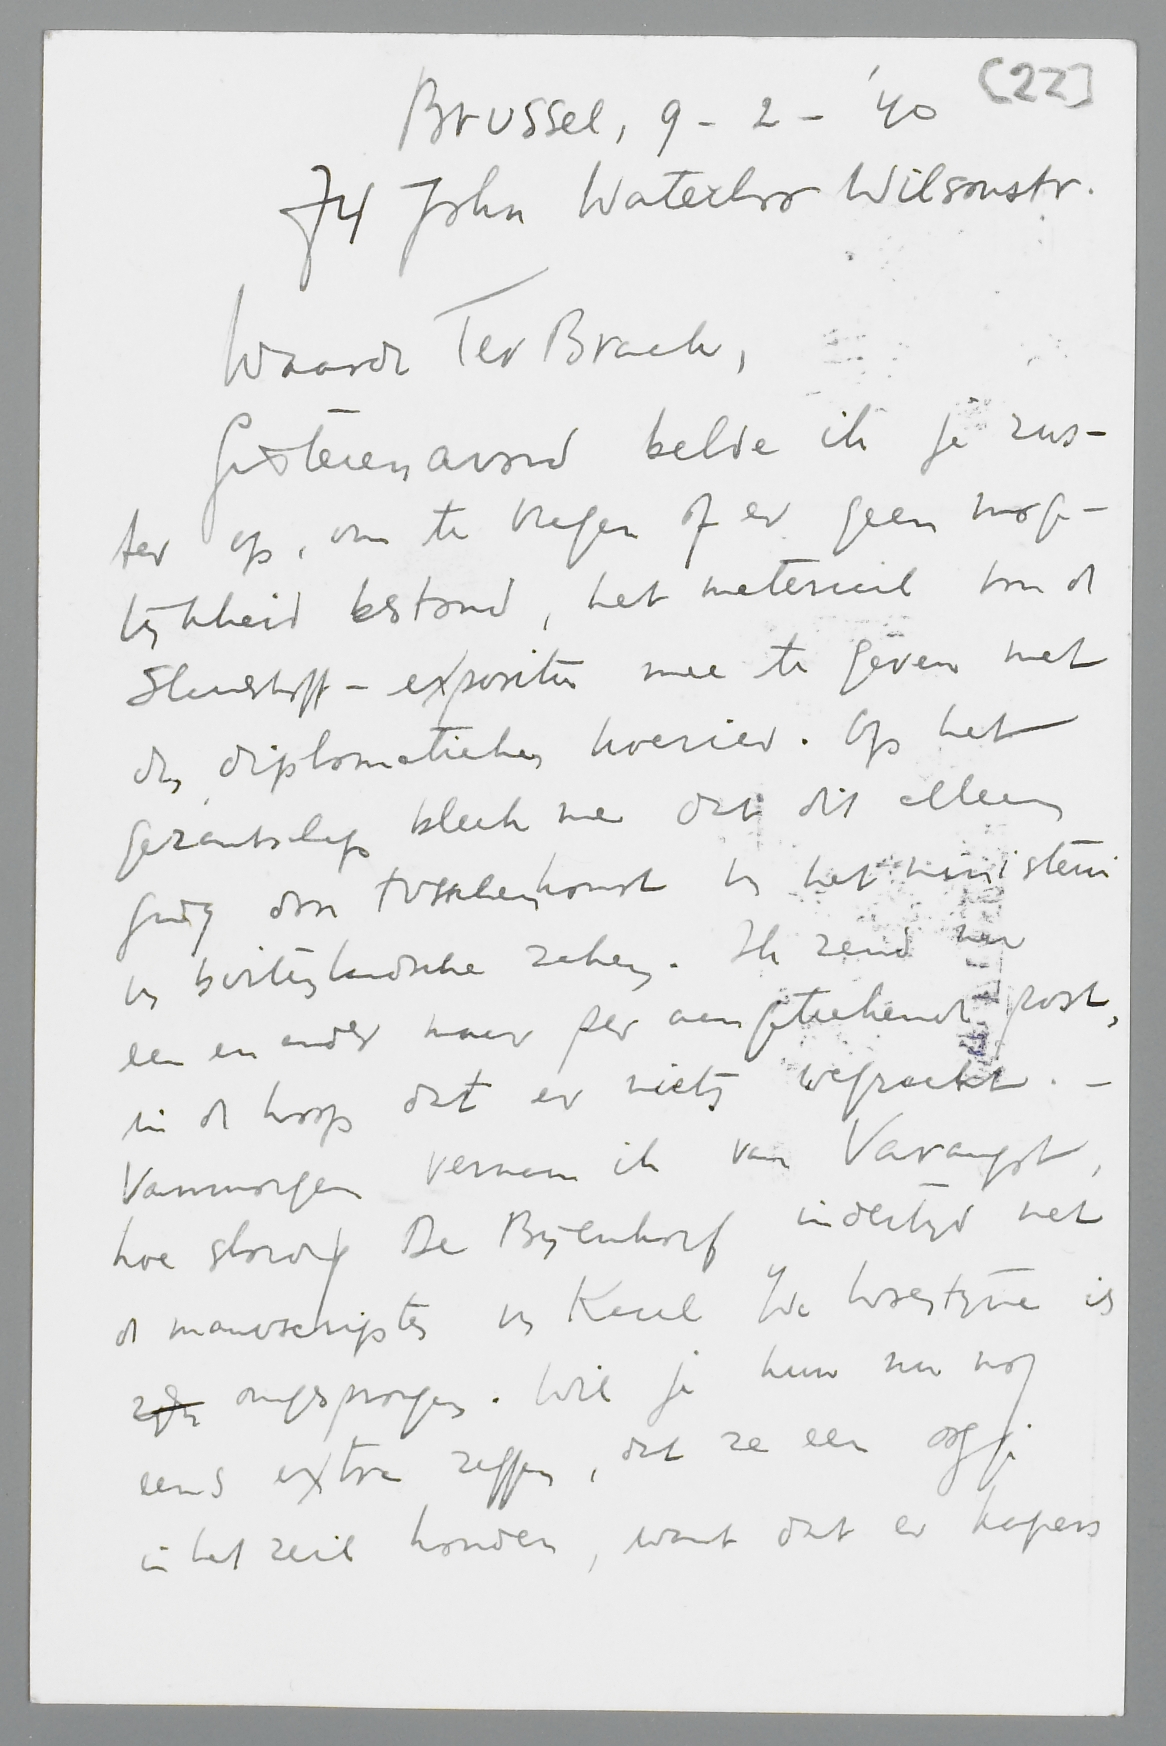 [22]
Brussel, 9 - 2 - '40
74 John Waterloo Wilsonstr.
Waarde Ter Braak,
Gisterenavond belde ik je zus-
ter op, om te vragen of er geen moge-
lijkheid bestond, het materiaal van de
Slauerhoff-expositie mee te geven met
den diplomatieken koerier. Op het
gezantschap bleek me dat dit alleen
ging door tusschenkomst v. het ministerie
v. buitenlandsche zaken. Ik zend
een en ander maar per aangeteekende post,
in de hoop dat er niets wegraakt. -
Vanmorgen vernam ik van Varangot,
hoe slordig De Bijenkorf indertijd met
de manuscripten v. Karel v/de Woestijne is
zijn omgesprongen. Wil je hun nu nog
eens extra zeggen, dat ze een oogje
in het zeil houden, want dat er kapers